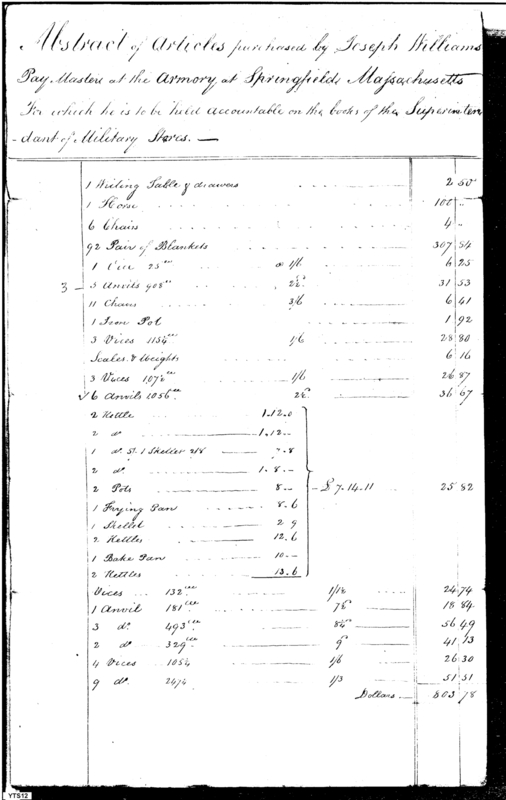 Abstract of Articles purchased by Joseph Williams
Pay Master at the Armory at Springfield Massachusetts
For which he is to be held accountable on the books of the Superinten
-dant of Military Stores. —
1 Writing Table & drawers 2 50
1 Horse 100 ..
6 Chairs 4 ..
92 Pair of Blankets 307 54
1 25 lbs a 1/6 6 25
3 — 5 Anvils 908 lbs 31 53
11 Chairs 3/6 6 41
1 Iron Pot 1 92
3 Vices 1154 lbs 1/6 28 80
Scales & Weights 6 16
3 Vices 1,072 lbs 1/6 26 87
6 Anvils 1056 lbs 36 67
2 Kettle 1.12.0
2 do 1.12 —
1 do 1 Skellet 7.8
2 do 1.8. —
2 Pots 8 — £ 7.14.11 25 82
1 Frying Pan 8.6
1 Skellet 2 9
2 Kettles 12.6
1 Bake Pan 10 —
2 Kettles 13.6
Vices 132 lbs 24 74
1 Anvil 181 lbs 18 84
3 do 493 lbs 56 49
2 do 329 lbs 9d 41 13
4 Vices 1054 1/6 26 30
9 do 1/3 51 51
Dollars — 803 78
YTS12